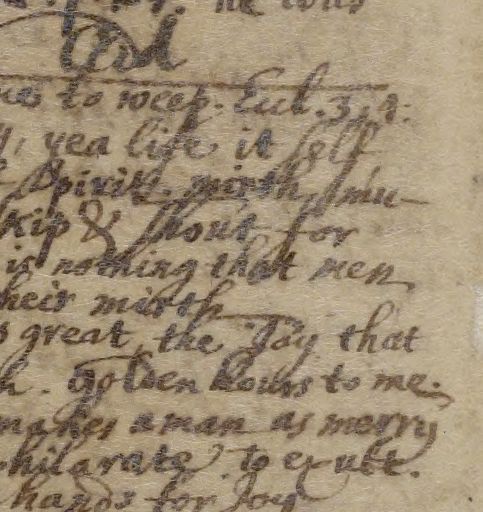 he
Glad
to weep. Eccl. 3. 4.
yea life it self
spirits. mirth, mu-
skip & shout for
is nothing that men
their mirth
great, the Joy that
golden hours to me.
makes a man as merry
exhilarate. to exult.
hands for Joy